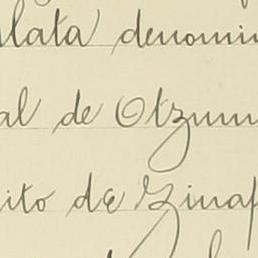 plata denomin
al de Otzum
ito de Zinap